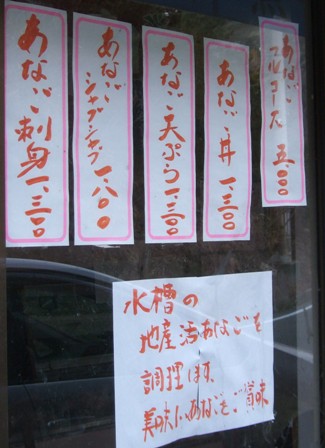 あなごフルコース 五、〇〇〇
あなご丼 一、三〇〇
あなご天ぷら 一、三〇〇
あなごシャブシャブ 一、八〇〇
あなご刺身 一、三〇〇
水槽の
地産活あなごを
調理します。
美味しいあなごをご賞味